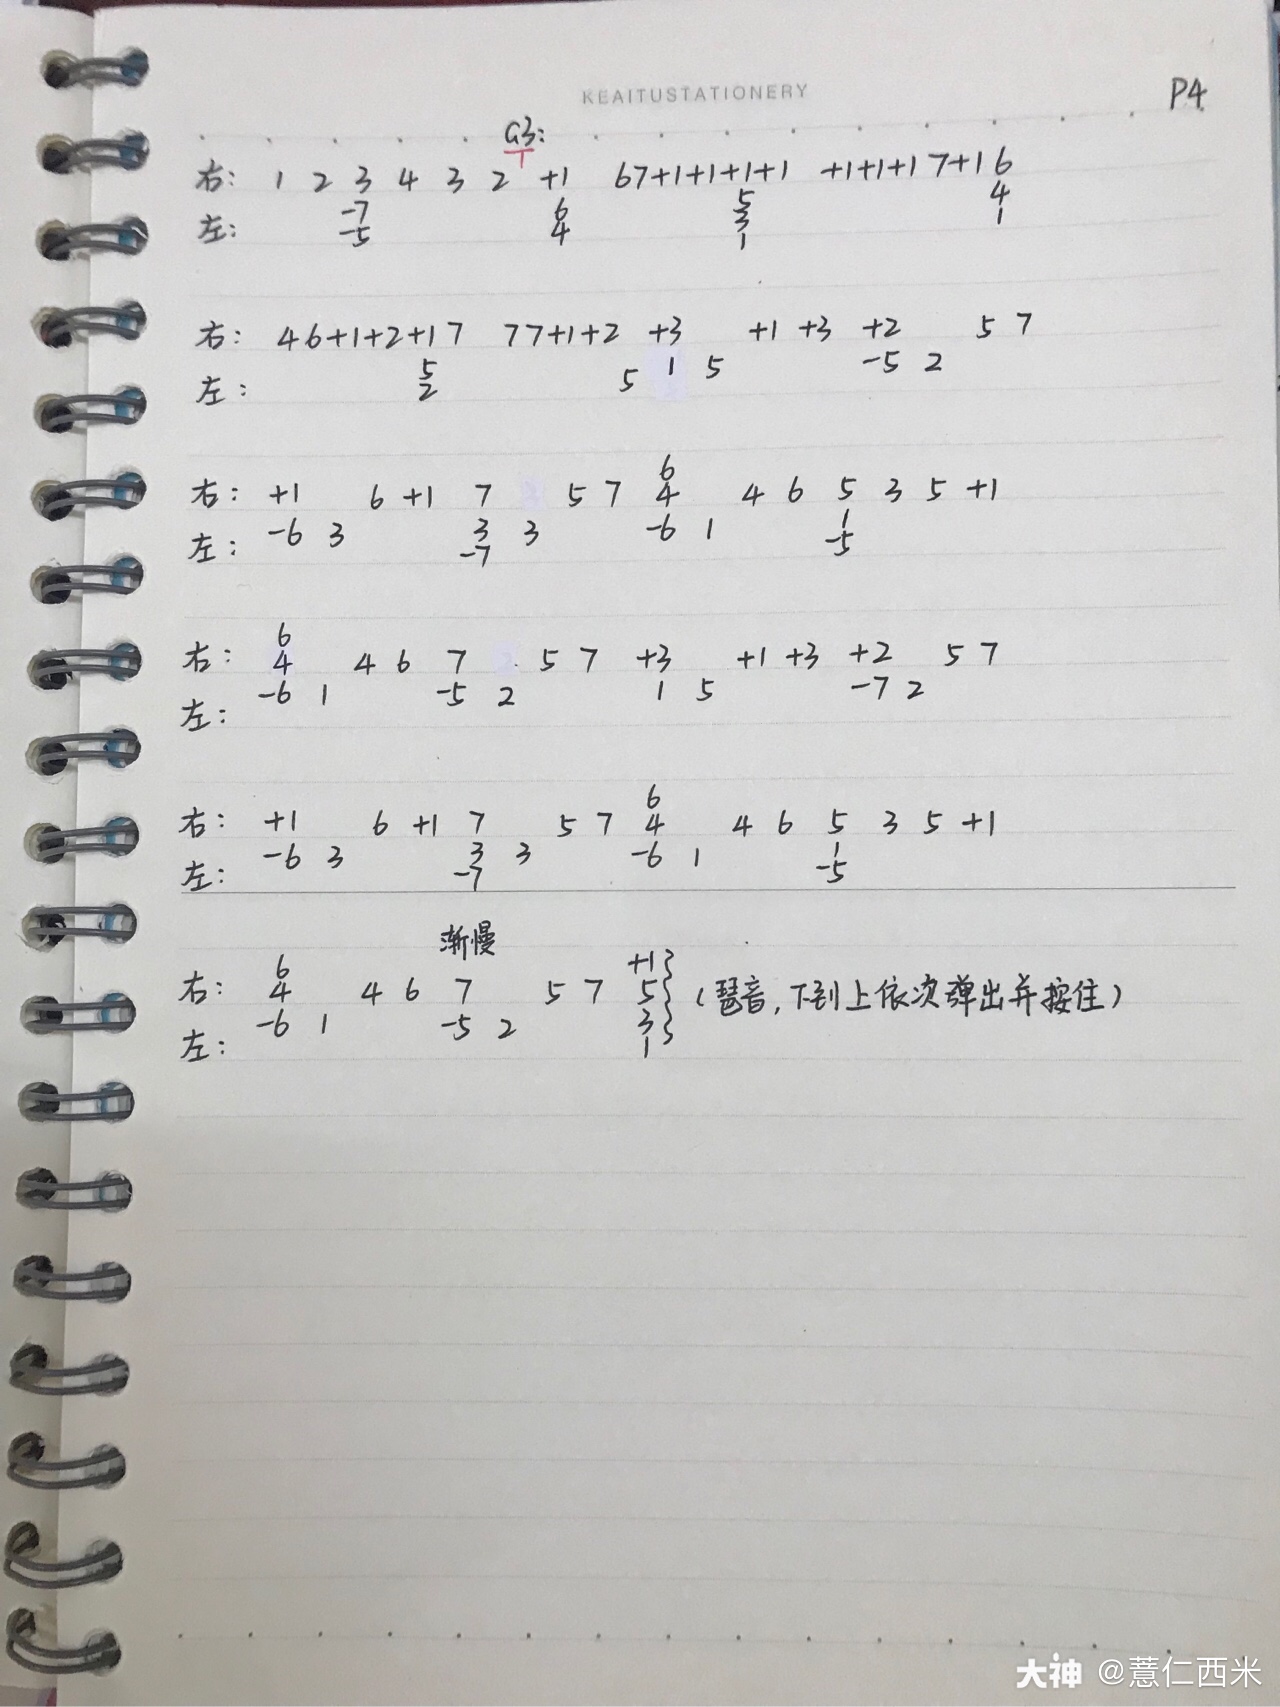 KEAITUSTATIONERY
P4
G3:
右: 1 2 3 4 3 2 +1 67+1+1+1+1 +1+1+17+16
-7 6 5 4
左: -5 4 3 1
1
右: 46+1+2+17 77+1+2 +3 +1 +3 +2 5 7
5 5 1 5 -5 2
左: 2
6
右: +1 6 +1 7 5 7 4 4 6 5 3 5 +1
-6 3 3 3 -6 1 1
左: -7 -5
6
右: 4 4 6 7 5 7 +3 +1 +3 +2 5 7
-6 1 -5 2 1 5 -7 2
左:
6
右: +1 6 +1 7 5 7 4 4 6 5 3 5 +1
-6 3 3 3 -6 1 1
左: -7 -5
渐慢
6 +1
右: 4 4 6 7 5 7 5 (琶音,下到上依次弹出并按住)
-6 1 -5 2 3
左: 1
大神 @薏仁西米